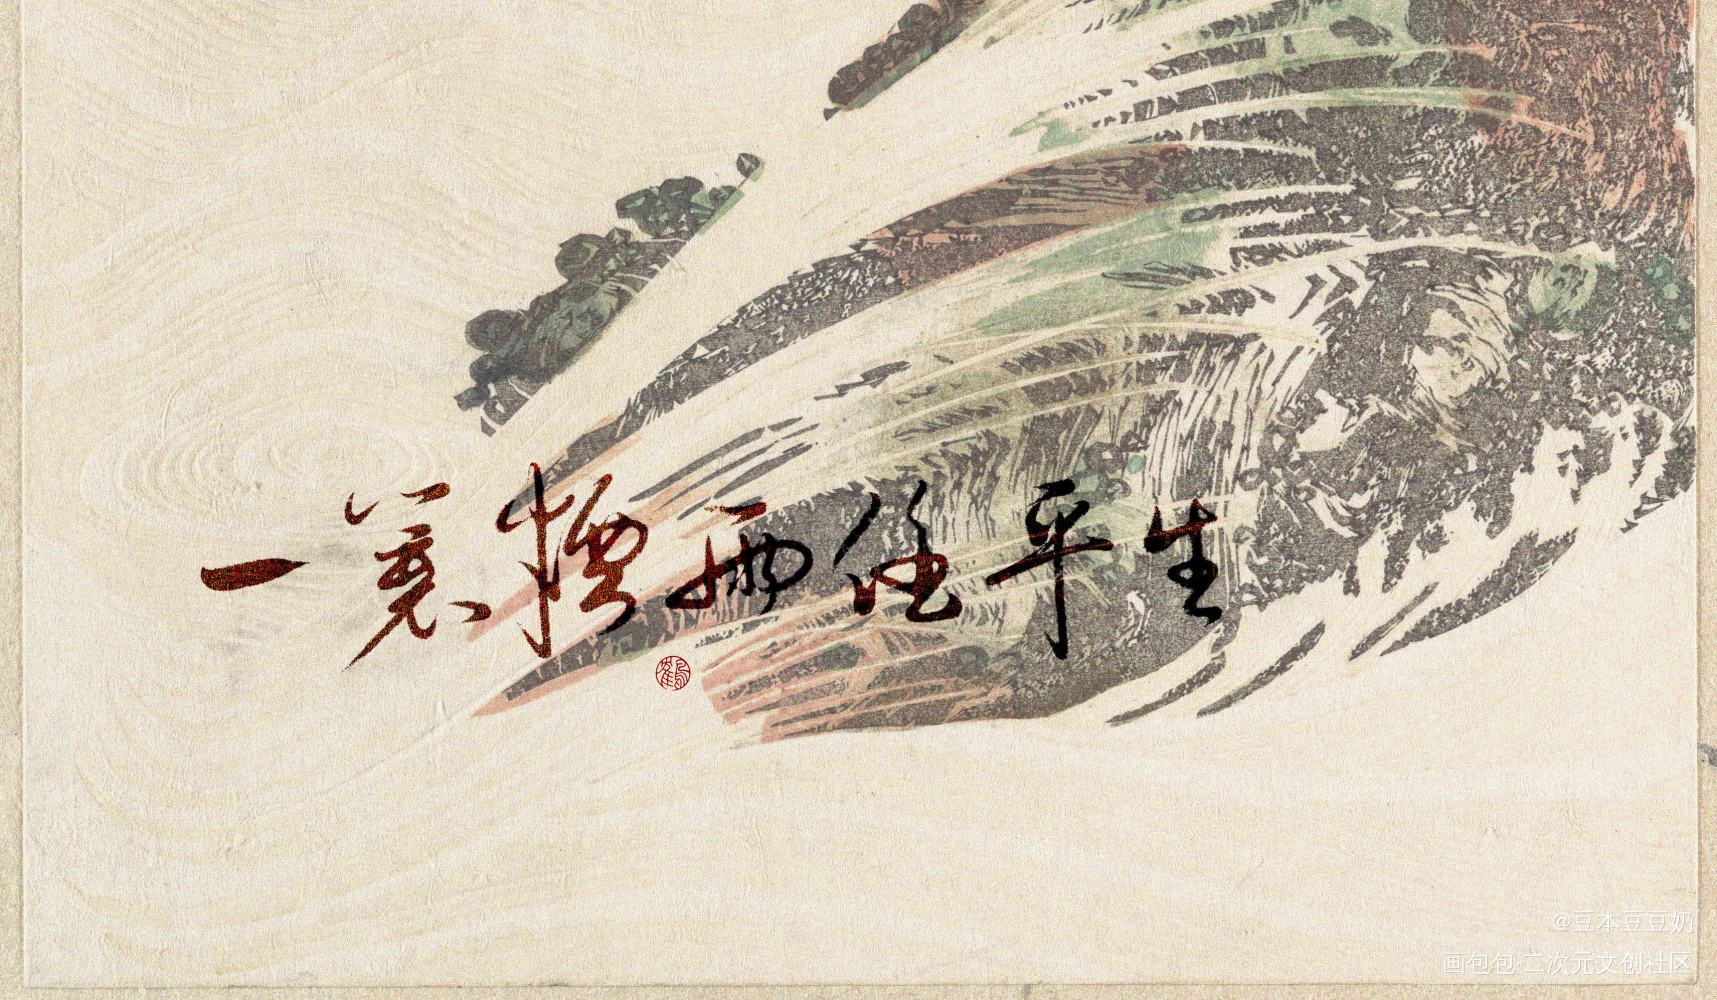 一蓑烟雨任平生
@豆本豆豆奶
画包包·二次元文创社区